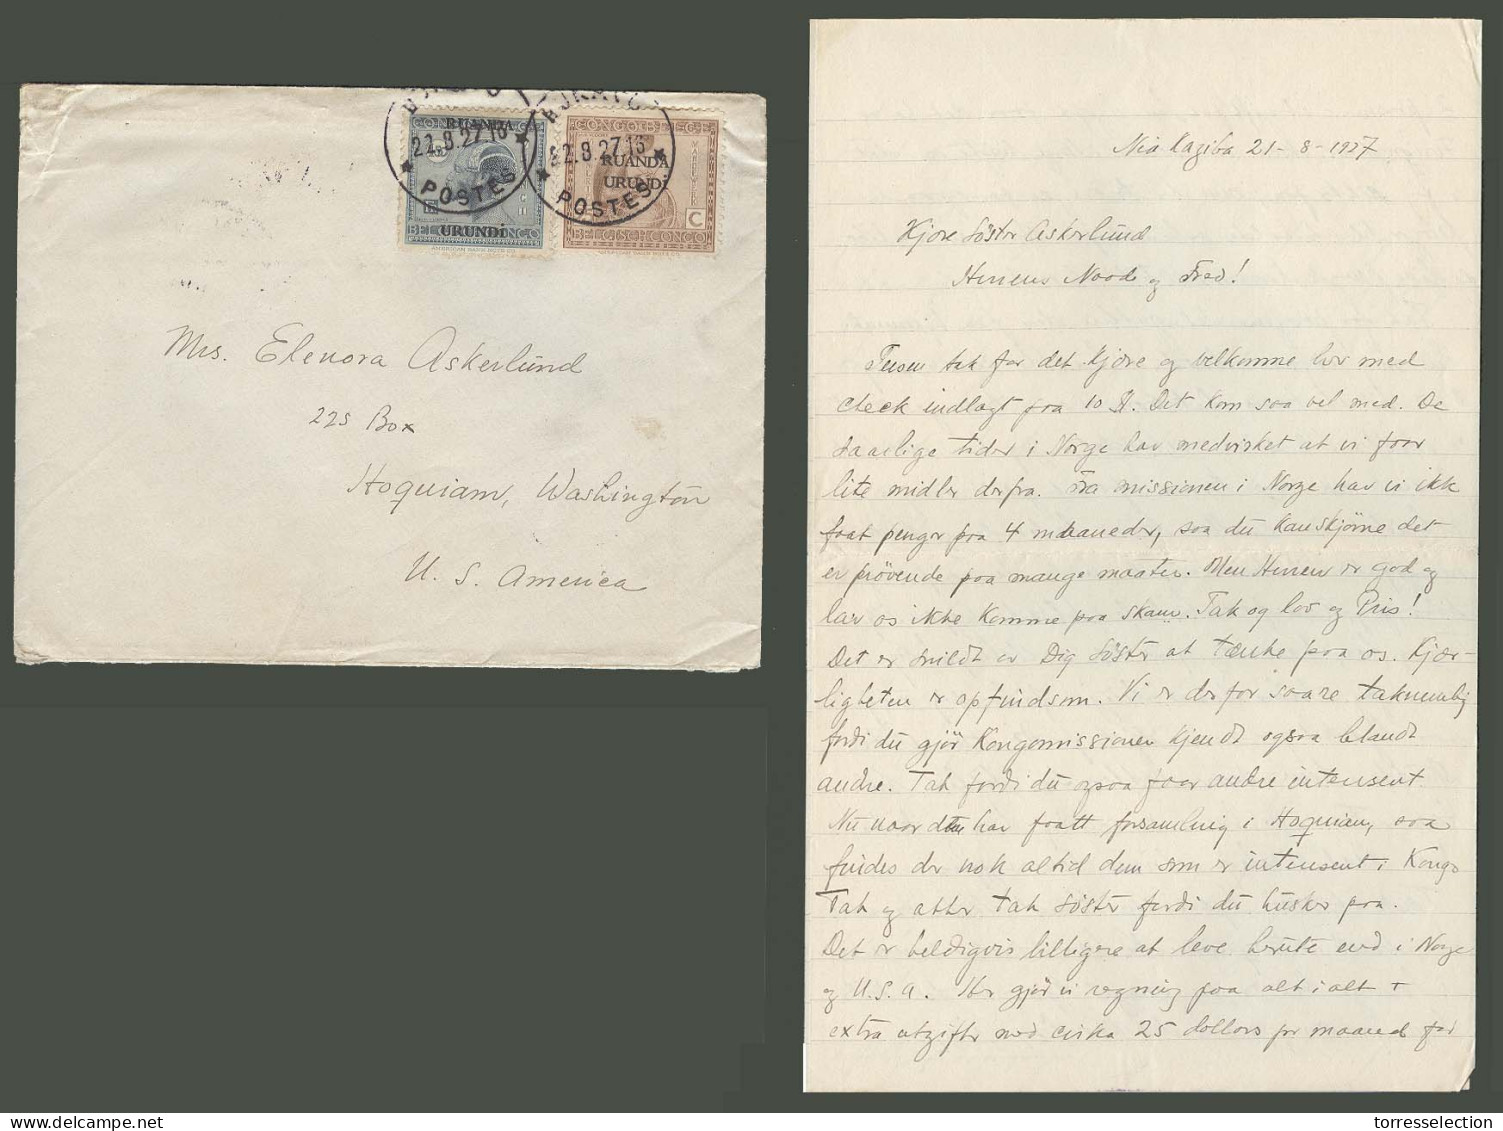 POSTES
22.8.27.16
RUANDA
URUNDI
BELGISCH CONGO
AMERICAN BANK NOTE CO.
BUKAVU
22.8.27.16
POSTES
CONGO BELGE
RUANDA
URUNDI
C
BELGISCH CONGO
AMERICAN BANK NOTE CO.
Mrs. Elenora Askerlund
225 Box
Hoquiam, Washington
U. S. America
Nia Kaziba 21-8-1927
Kjøre Söster Askerlund
Herrens Naade og Fred!
tak for det kjøre og velkomne brev med
check indlagt paa 10 $. Det kom saa vel med. De
daarlige tider i Norge har medvirket at vi faar
lite midler derfra. Fra missionen i Norge har vi ikk
faat penger paa 4 maaneder, saa du kan skjönne det
er prövende paa mange maater. Men Herren er god og
lar os ikke komme paa skam. Tak og lov og Pris!
Det er snildt av Dig Söster at tænke paa os. Kjær-
ligheten er opfindsom. Vi er derfor saare taknemlig
fordi du gjör Kongomissionen kjendt ogsaa blandt
andre. Tak fordi du ogsaa faar andre intersent
Nu naar har faatt forsamling i Hoquiam, saa
findes der nok altid dem som er intersent i Kongo
Tak og atter tak Söster fordi du husker paa.
Det er heldigvis billigere at leve herute end i Norge
og U.S.A. Her gjör vi regning paa alt i alt +
extra utgifter med cirka 25 dollars pr maaned for
torresselection